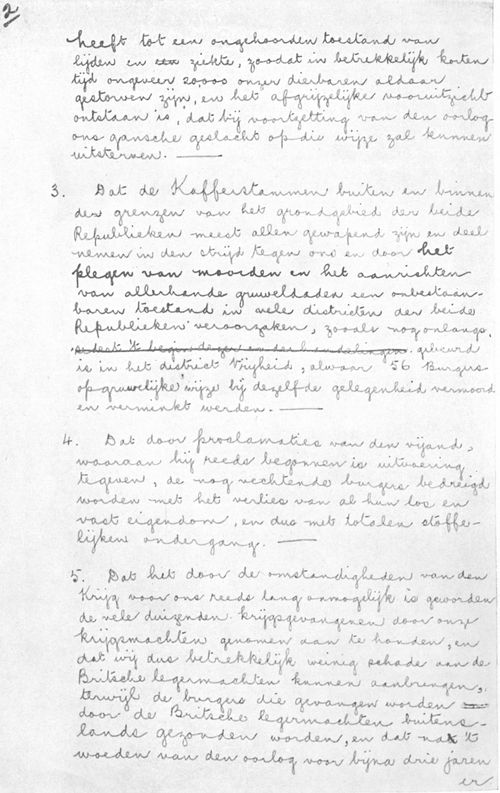 2
heeft tot een ongehoorden toestand van
lijden en ziekte, zoodat in betrekkelijk korten
tijd ongeveer 20,000 onzer dierbaren aldaar
gestorven zijn, en het afgrijzelijke vooruitzicht
ontstaan is, dat bij voortzetting van den oorlog
ons gansche geslacht op die wijze zal kunnen
uitsterven. —
3. Dat de Kafferstammen buiten en binnen
der grenzen van het grondgebied der beide
Republieken meest allen gewapend zijn en deel
nemen in den strijd tegen ons en door het
plegen van moorden en het aanrichten
van allerhande gruweldaden een onbestaan-
baren toestand in vele districten der beide
Republieken veroorzaken, zooals nog onlangs,
sedert 't begin dezer onderhandelingen gebeurd
is in het district Vrijheid, alwaar 56 Burgers
op gruwelijke wijze bij dezelfde gelegenheid vermoord
en verminkt werden. —
4. Dat door proclamaties van den vijand,
waaraan hij reeds begonnen is uitvoering
te geven, de nog vechtende burgers bedreigd
worden met het verlies van al hun los en
vast eigendom, en dus met totalen stoffe-
lijken ondergang. —
5. Dat het door de omstandigheden van den
Krijg voor ons reeds lang onmogelijk is geworden
de vele duizenden krijgsgevangenen door onze
krijgsmachten genomen aan te houden, en
dat wij dus betrekkelijk weinig schade aan de
Britsche legermachten kunnen aanbrengen,
terwijl de burgers die gevangen worden
door de Britsche legermachten buitens-
lands gezonden worden, en dat na 't
woeden van den oorlog voor bijna drie jaren
er